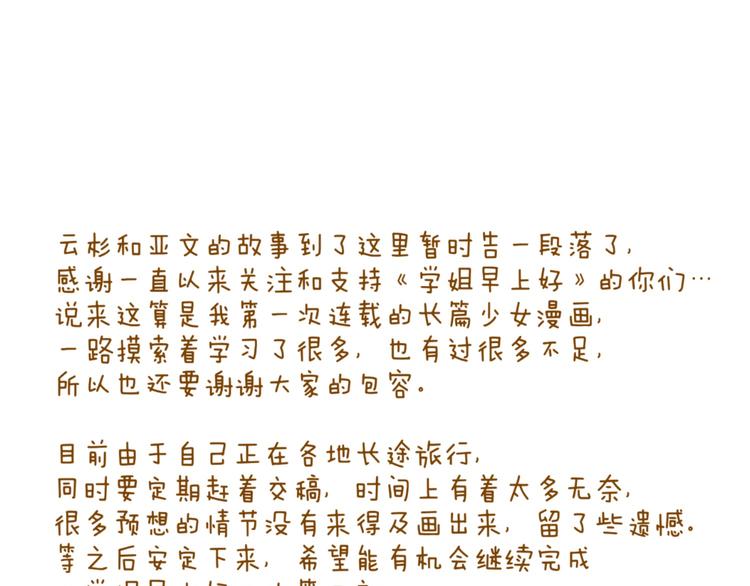 云杉和亚文的故事到了这里暂时告一段落了,
感谢一直以来关注和支持《学姐早上好》的你们…
说来这算是我第一次连载的长篇少女漫画,
一路摸索着学习了很多, 也有过很多不足,
所以也还要谢谢大家的包容。
目前由于自己正在各地长途旅行,
同时要定期赶着交稿, 时间上有着太多无奈,
很多预想的情节没有来得及画出来, 留了些遗憾。
等之后安定下来, 希望能有机会继续完成